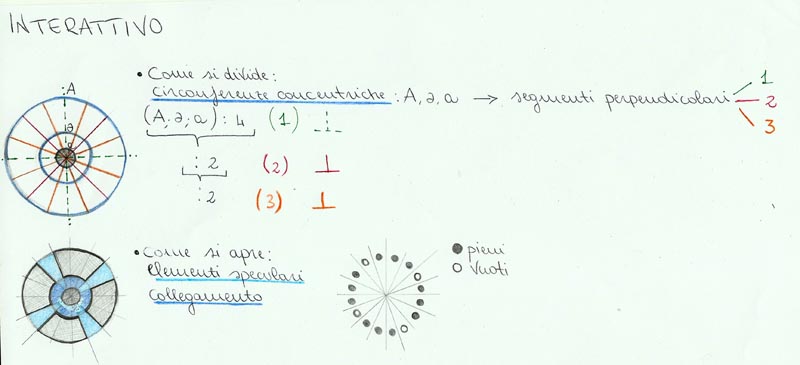 INTERATTIVO
• Come si divide:
circonferenze concentriche : A, a, a → segmenti perpendicolari
1
2
3
(A, a, a) : 4 (1)
: 2 (2)
: 2 (3)
A
a
• Come si apre:
elementi speculari
collegamento
pieni
vuoti